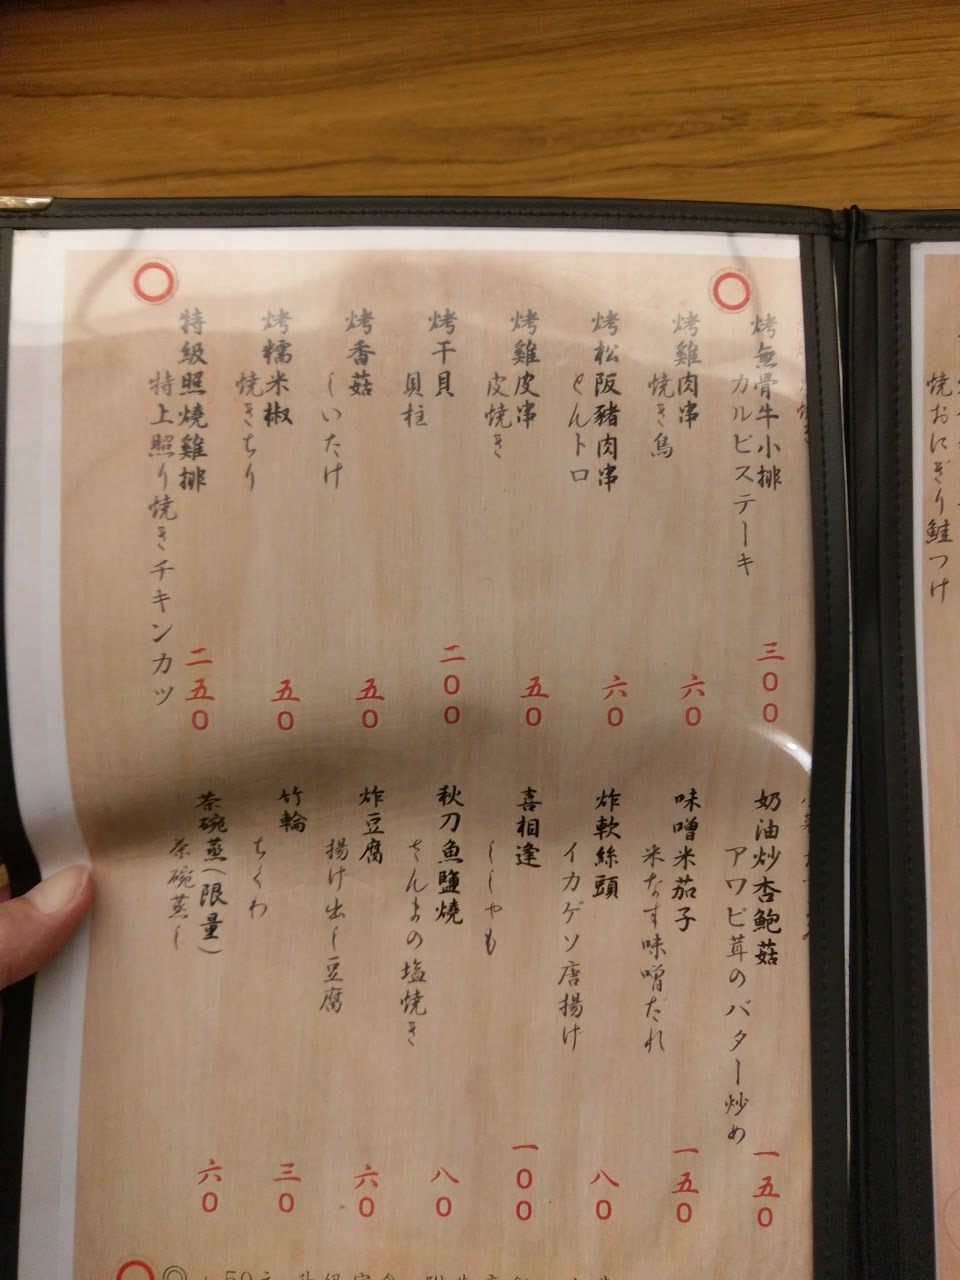 焼おにぎり鮭つけ
烤無骨牛小排
カルビステーキ
三00
烤雞肉串
焼き鳥
六0
烤松阪豬肉串
とんトロ
六0
烤雞皮串
皮焼き
五0
烤干貝
貝柱
二00
烤香菇
しいたけ
五0
烤糯米椒
焼きちり
五0
特級照燒雞排
特上照り焼きチキンカツ
二五0
奶油炒杏鮑菇
アワビ茸のバター炒め
一五0
味噌米茄子
米なす味噌だれ
一五0
炸軟絲頭
イカゲソ唐揚げ
八0
喜相逢
ししゃも
一00
秋刀魚鹽燒
さんまの塩焼き
八0
炸豆腐
揚げ出し豆腐
六0
竹輪
ちくわ
三0
茶碗蒸(限量)
茶碗蒸し
六0